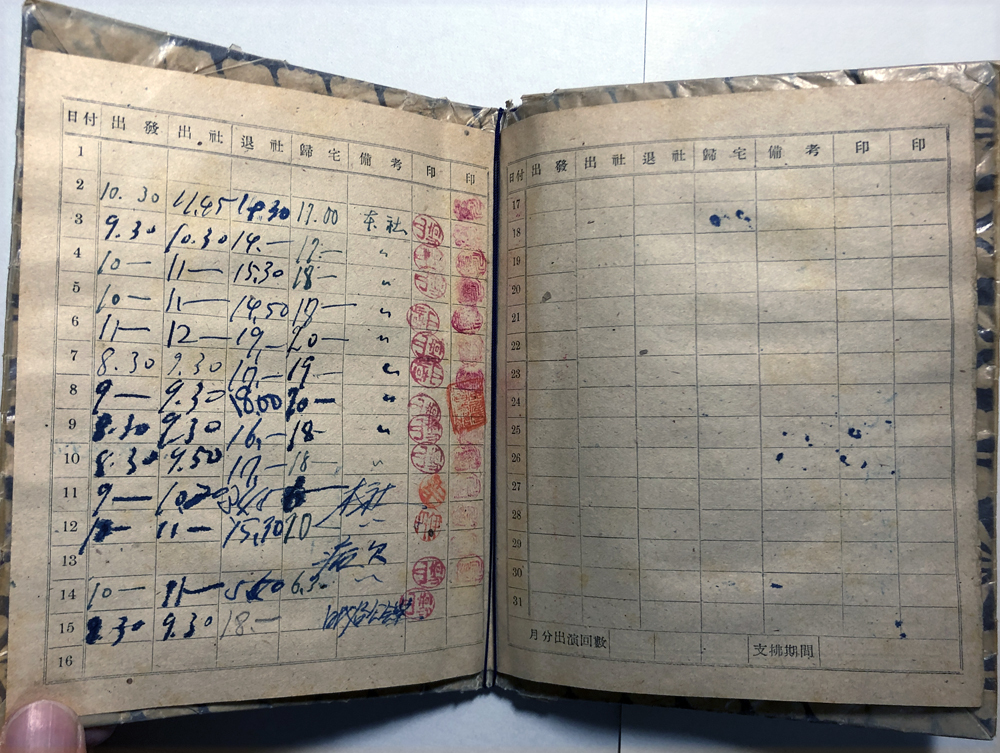 日付 出發 出社 退社 歸宅 備考 印 印
1
2 10.30 11.45 14.30 17.00 本社
3 9.30 10.30 14.— 17— 〃
4 10— 11— 15.30 18— 〃
5 10— 11— 14.50 17— 〃
6 11— 12— 19— 20— 〃
7 8.30 9.30 17.— 19— 〃
8 9— 9.30 18.00 20— 〃
9 8.30 9.30 16.— 18— 〃
10 8.30 9.50 17.— 18— 〃
11 9— 本社
12 11— 15.30 〃
13 病欠
14 10— 11— 〃
15 9.30 18.—
16
日付 出發 出社 退社 歸宅 備考 印 印
17
18
19
20
21
22
23
24
25
26
27
28
29
30
31
月分出演回數 支拂期間